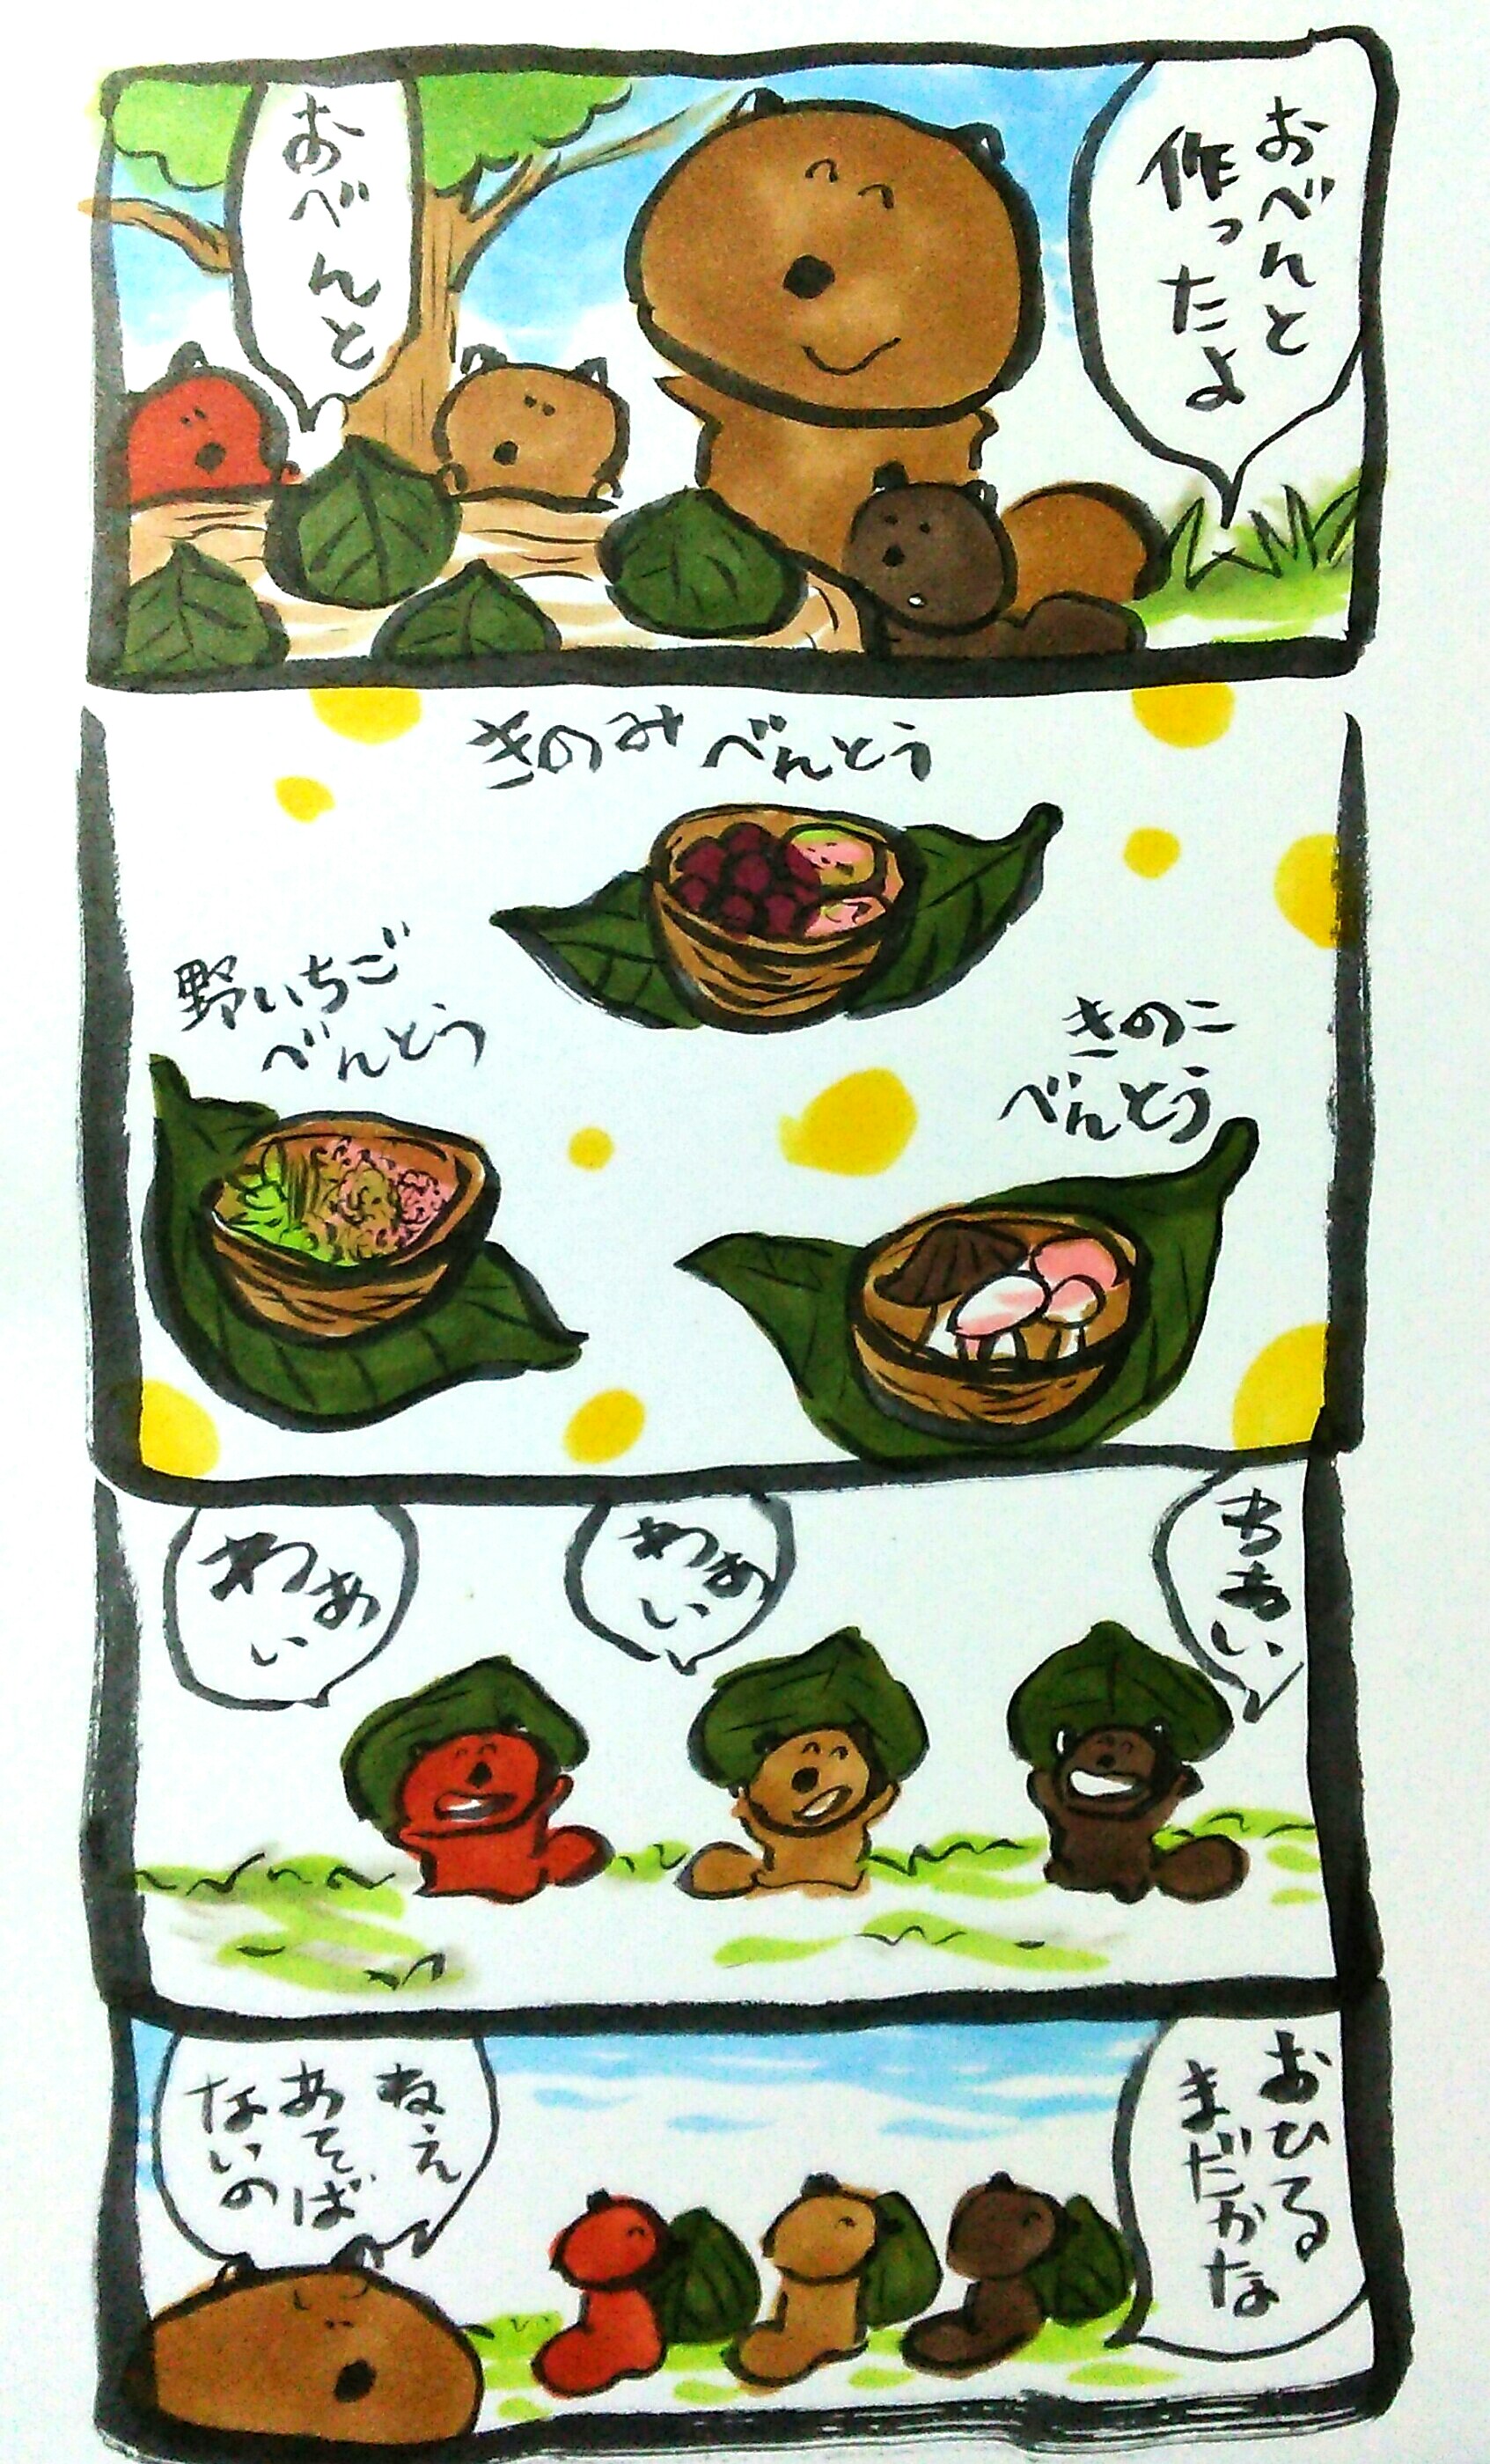 おべんと
作ったよ
おべんと
きのみべんとう
野いちご
べんとう
きのこ
べんとう
ちぁい
わぁ
い
わぁ
い
おひる
まだかな
ねえ
あそば
ないの